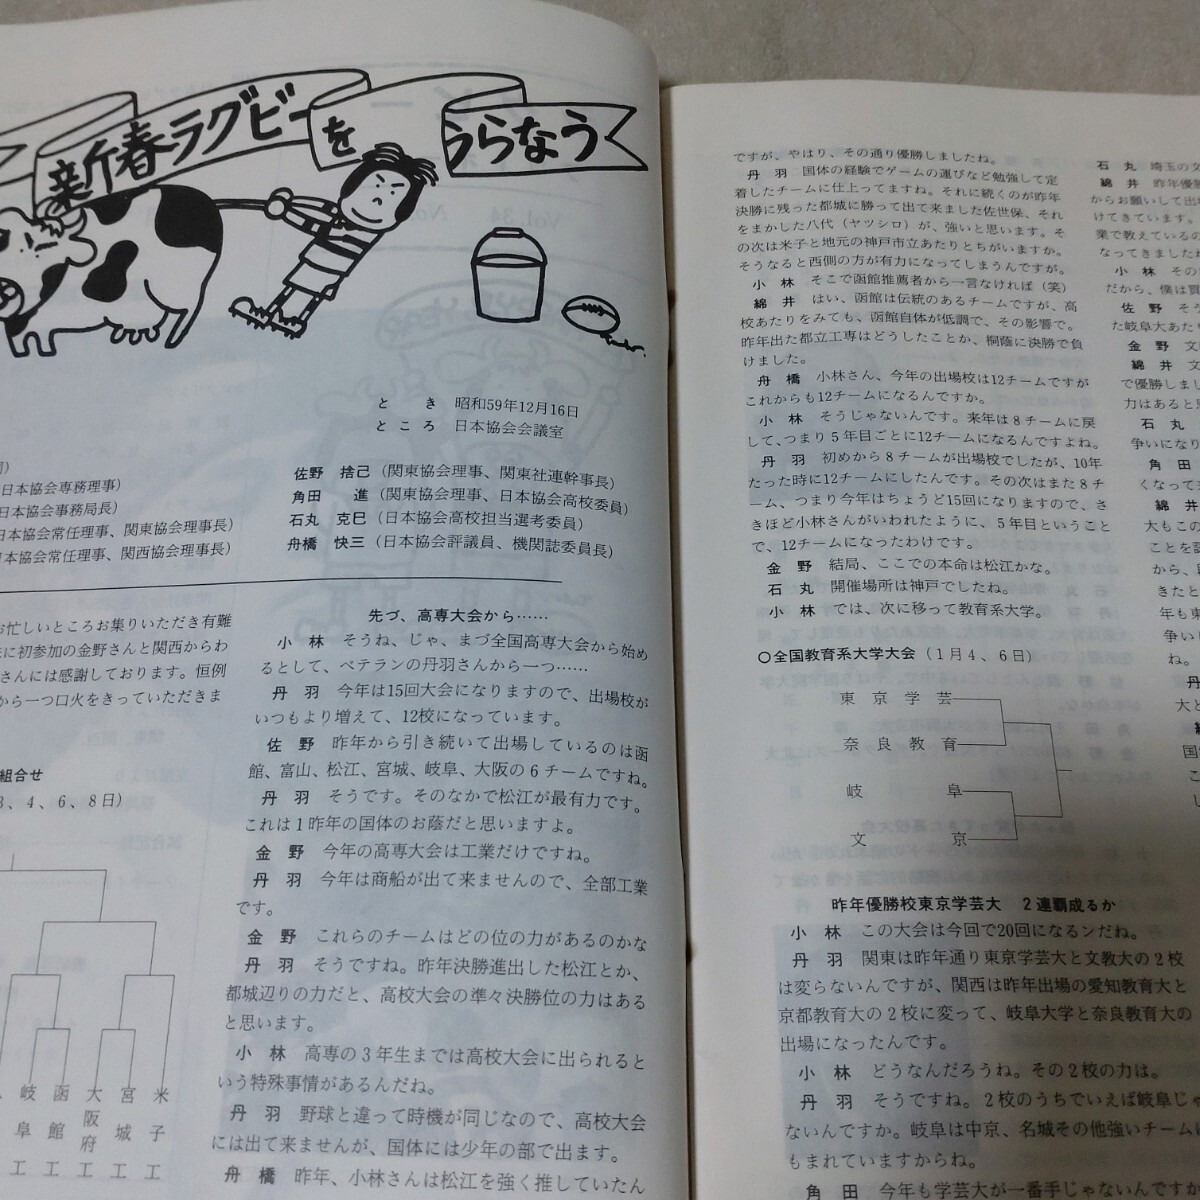 新春ラグビーを うらなう
と き 昭和59年12月16日
ところ 日本協会会議室
日本協会専務理事)
日本協会事務局長)
日本協会常任理事、関東協会理事長)
本協会常任理事、関西協会理事長)
佐野 捨己(関東協会理事、関東社連幹事長)
角田 進(関東協会理事、日本協会高校委員)
石丸 克巳(日本協会高校担当選考委員)
舟橋 快三(日本協会評議員、機関誌委員長)
お忙しいところお集りいただき有難
に初参加の金野さんと関西からわ
さんには感謝しております。恒例
から一つ口火をきっていただきま
組合せ
3、4、6、8日)
岐阜工
函館工
大阪府工
宮城工
米子工
先づ、高専大会から……
小林 そうね、じゃ、まづ全国高専大会から始め
るとして、ベテランの丹羽さんから一つ……
丹羽 今年は15回大会になりますので、出場校が
いつもより増えて、12校になっています。
佐野 昨年から引き続いて出場しているのは函
館、富山、松江、宮城、岐阜、大阪の6チームですね。
丹羽 そうです。そのなかで松江が最有力です。
これは1昨年の国体のお蔭だと思いますよ。
金野 今年の高専大会は工業だけですね。
丹羽 今年は商船が出て来ませんので、全部工業
です。
金野 これらのチームはどの位の力があるのかな
丹羽 そうですね。昨年決勝進出した松江とか、
都城辺りの力だと、高校大会の準々決勝位の力はある
と思います。
小林 高専の3年生までは高校大会に出られると
いう特殊事情があるんだね。
丹羽 野球と違って時機が同じなので、高校大会
には出て来ませんが、国体には少年の部で出ます。
舟橋 昨年、小林さんは松江を強く推していたん
ですが、やはり、その通り優勝しましたね。
丹羽 国体の経験でゲームの運びなど勉強して定
着したチームに仕上ってますね。それに続くのが昨年
決勝に残った都城に勝って出て来ました佐世保、それ
をまかした八代(ヤツシロ)が、強いと思います。そ
の次は米子と地元の神戸市立あたりとちがいますか。
そうなると西側の方が有力になってしまうんですが。
小林 そこで函館推薦者から一言なければ(笑)
綿井 はい、函館は伝統のあるチームですが、高
校あたりをみても、函館自体が低調で、その影響で。
昨年出た都立工専はどうしたことか、桐蔭に決勝で負
けました。
舟橋 小林さん、今年の出場校は12チームですが
これからも12チームになるんですか。
小林 そうじゃないんです。来年は8チームに戻
して、つまり5年目ごとに12チームになるんですよね。
丹羽 初めから8チームが出場校でしたが、10年
たった時に12チームにしたんです。その次はまた8チ
ーム、つまり今年はちょうど15回になりますので、さ
きほど小林さんがいわれたように、5年目ということ
で、12チームになったわけです。
金野 結局、ここでの本命は松江かな。
石丸 開催場所は神戸でしたね。
小林 では、次に移って教育系大学。
○全国教育系大学大会(1月4、6日)
東京学芸
奈良教育
岐阜
文京
昨年優勝校東京学芸大 2連覇成るか
小林 この大会は今回で20回になるンだね。
丹羽 関東は昨年通り東京学芸大と文教大の2校
は変らないんですが、関西は昨年出場の愛知教育大と
京都教育大の2校に変って、岐阜大学と奈良教育大の
出場になったんです。
小林 どうなんだろうね。その2校の力は。
丹羽 そうですね。2校のうちでいえば岐阜じゃ
ないんですか。岐阜は中京、名城その他強いチームに
もまれていますからね。
角田 今年も学芸大が一番手じゃないんですか
石丸 埼玉の文
綿井 昨年優勝
からお願いして出場
けてきています。
業で教えているの
なってきました
小林 その
だから、僕は買
佐野 そう
た岐阜大あた
金野 文
綿井 文
で優勝しま
力はあると
石丸
争いになり
角田
くなって
綿井
大もこの
ことを
から、
きたと
年も東
争い
ね。
丹
大と
国
こ
し